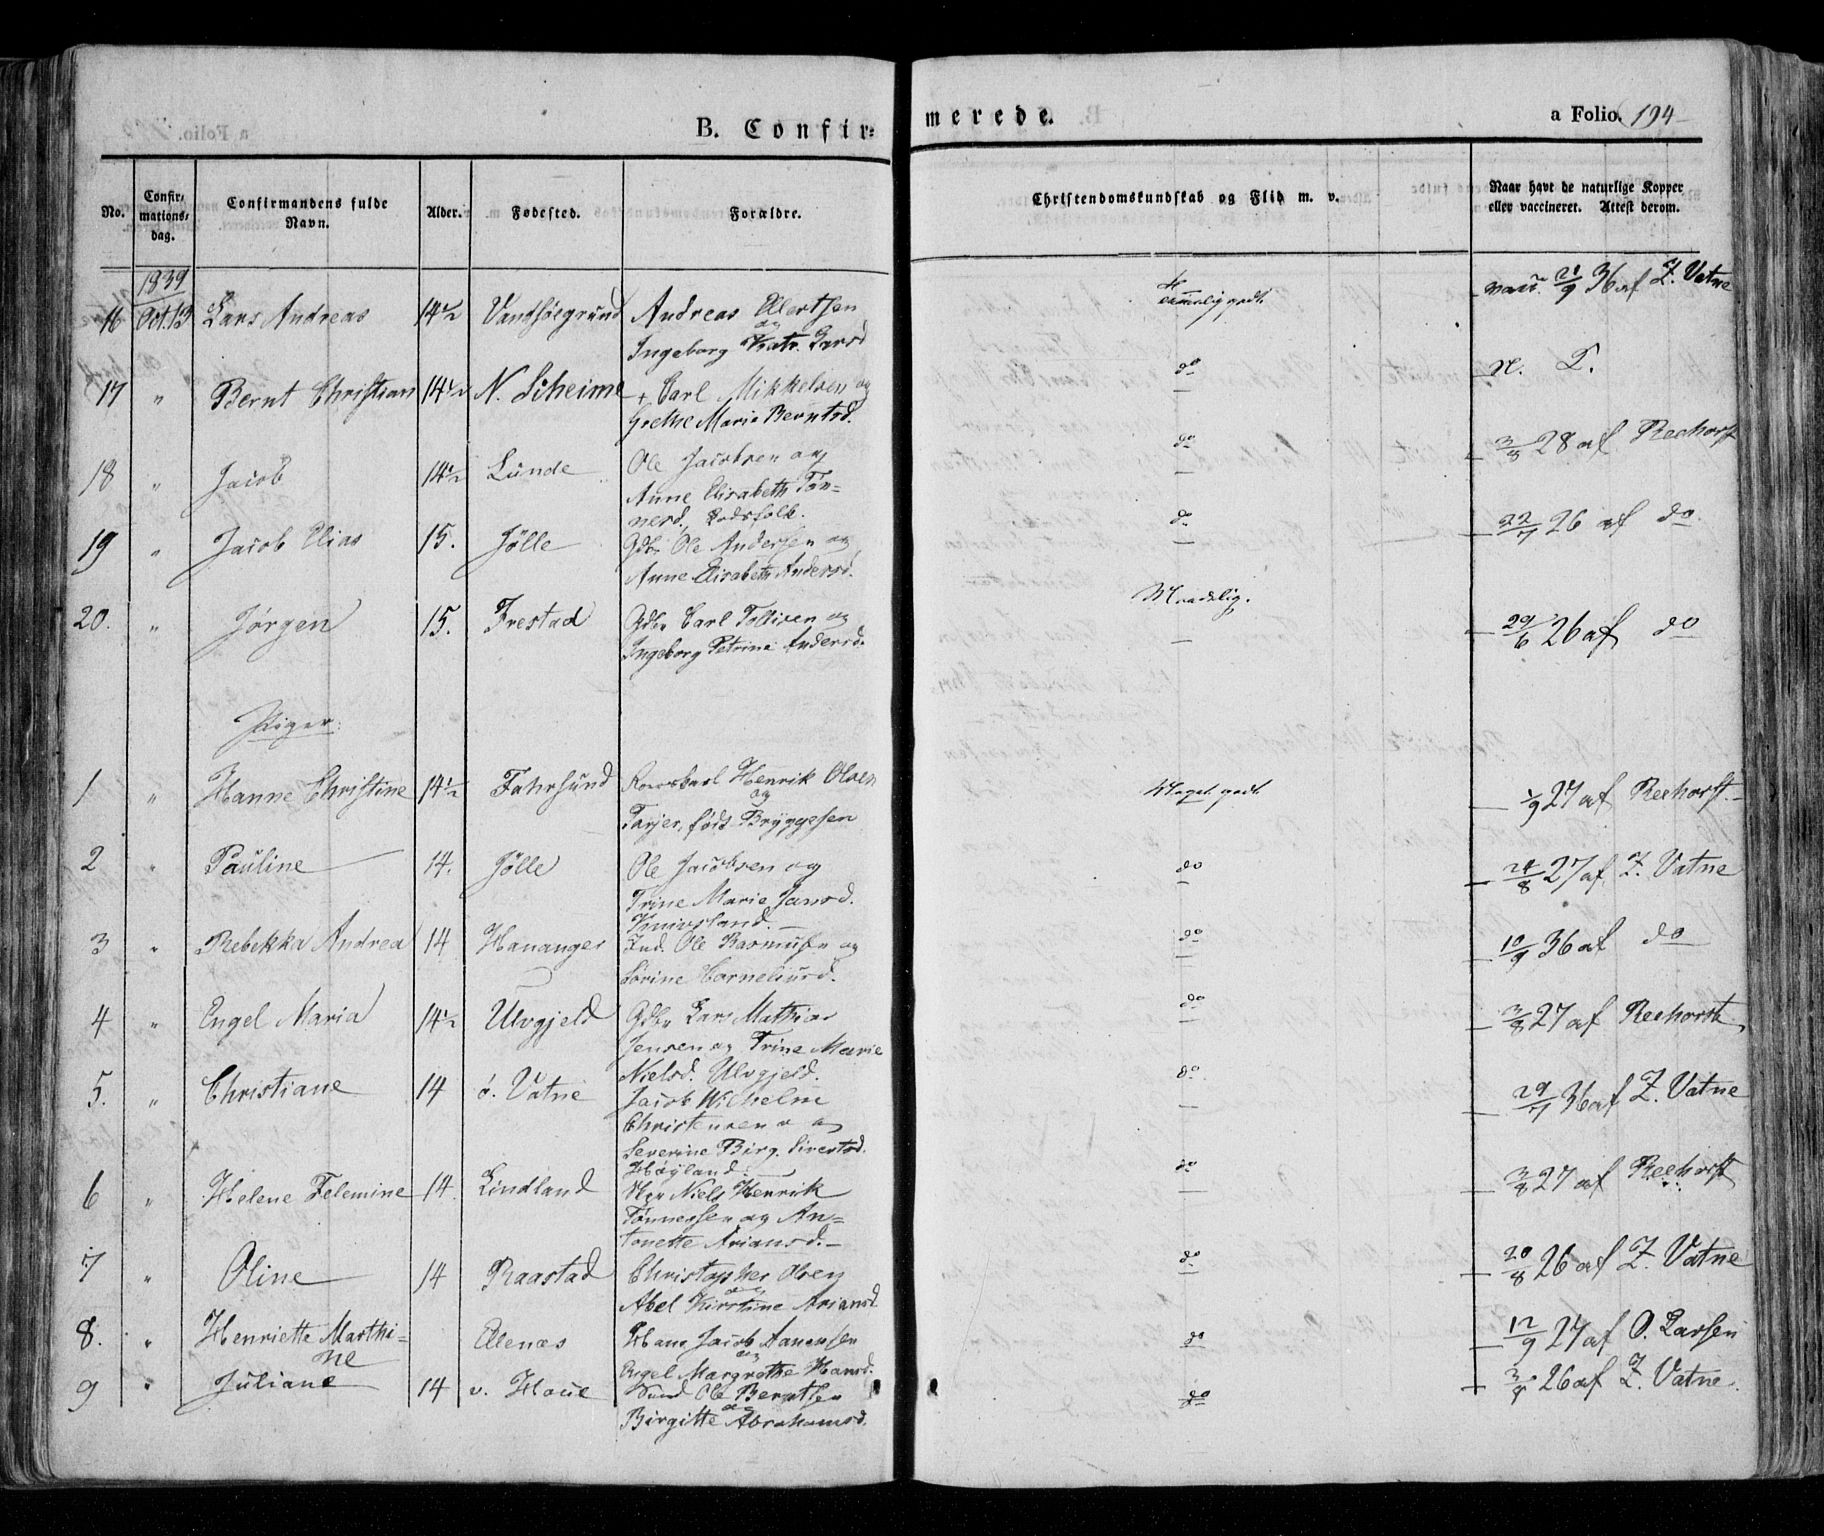 B. Confir=
merede.
a Folio. 194
No.
Confir-
mations-
dag.
Confirmandens fulde
Navn.
Alder.
Fødested.
Forældre.
Christendomskundskab og Flid m. v.
Naar havt de naturlige Kopper
eller vaccineret. Attest derom.
1839
16 Oct. 13 Lars Andreas 14½ Andreas Ellertsen temmelig godt. vacc. 21/9 36 af Z. Vatne
og
Ingeborg Katr. Larsd
17 " Bernt Christian 14½ N. Scheime + Carl Mikkelsen og do
Grethe Marie Berntsd.
18 " Jacob 14½ Lunde Ole Jacobsen og do — 3/8 28 af Reehorst
Anne Elisabeth Tøn=
nesd. Lodsfolk.
19 " Jacob Elias 15. Jølle Gdbr Ole Andersen og do — 22/7 26 af do.
Anne Elisabeth Andersd.
20. " Jørgen 15. Frestad Gdbr Carl Tollisen og Maadelig. — 29/6 26 af do
Ingeborg Petrine Andersd.
Piger.
1 " Hanne Christine 14½ Fahrsund Henrik Olsen Meget godt. — 1/9 27 af Reehorst.
og
Tarjer, født Bryggesen
2 " Pauline 14. Jølle Ole Jacobsen og do — 24/8 27 af Z. Vatne
Trine Marie Jansd.
3 " Rebekka Andrea 14 Hananger Ind. Ole Rasmusen og do — 10/9 36 af do
Sørine Corneliusd.
4 " Engel Maria 14½ Ulvgjeld Gdbr Lars Mathias do — 3/8 27 af Reehorst
Jensen og Trine Marie
Nielsd. Ulvgjeld.
5. " Christiane 14 ø. Vatne Jacob Wilhelm do — 29/7 36 af Z. Vatne
Christensen og
Severine Birg. Sivertsd.
Høyland.
6 " Helene Felemine 14. Lindland Niels Henrik do — 3/8 27 af Reehorst
Tønnessen og An=
tonette Ariansd.
7 " Oline 14 Raastad Christopher Olsen do — 20/8 26 af Z. Vatne
og
Abel Kirstine Ariansd.
8. " Henriette Marthi= Elenæs Hans Jacob Aanensen do — 12/9 27 af O. Larsen
ne og
Engel Margrethe Hansd.
9 " Juliane 14 v. Haue Ole Berntsen do — 26 af Z. Vatne.
og
Birgitte Abrahamsd.